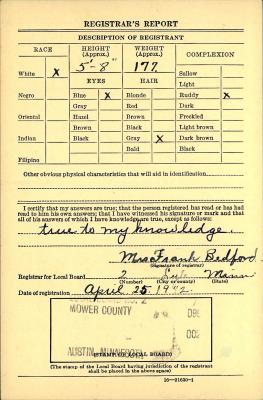 REGISTRAR'S REPORT
DESCRIPTION OF REGISTRANT
RACE HEIGHT (Approx.) WEIGHT (Approx.) COMPLEXION
5'-8" 177
White X EYES HAIR Sallow
Light
Negro Blue X Blonde Ruddy X
Gray Red Dark
Oriental Hazel Brown Freckled
Brown Black Light brown
Indian Black Gray X Dark brown
Bald Black
Filipino
Other obvious physical characteristics that will aid in identification
I certify that my answers are true; that the person registered has read or has had
read to him his own answers; that I have witnessed his signature or mark and that
all of his answers of which I have knowledge are true, except as follows:
true to my knowledge.
Mrs Frank Bedford
(Signature of registrar)
Registrar for Local Board 2 Minn
(Number) (City or county) (State)
Date of registration April 25 1942
NO. 2
MOWER COUNTY
AUSTIN, MINNESOTA
(STAMP OF LOCAL BOARD)
(The stamp of the Local Board having jurisdiction of the registrant
shall be placed in the above space)
16—21630-1